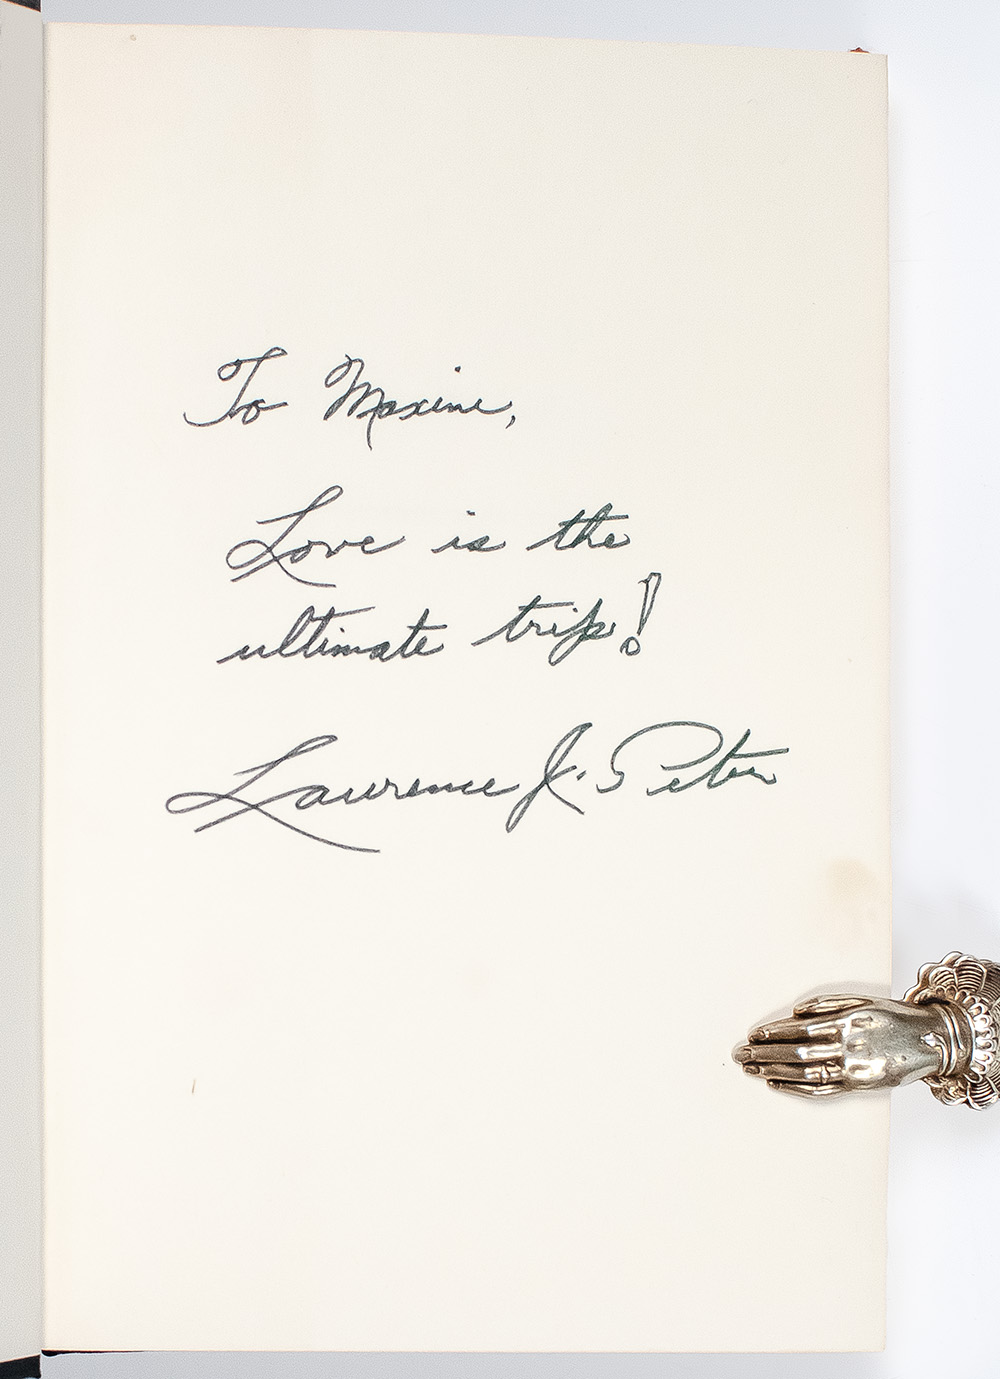 To Maxine,
Love is the
ultimate trip!
Laurence J. Peter